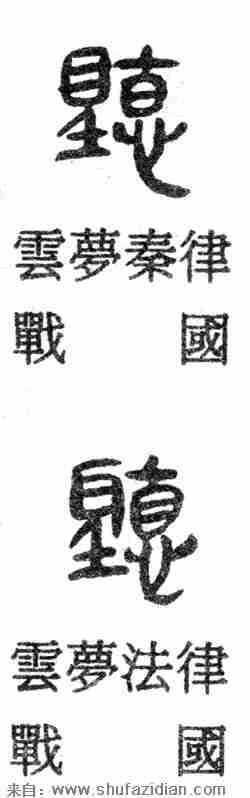 聽
雲夢秦律
戰國
聽
雲夢法律
戰國
来自：www.shufazidian.com